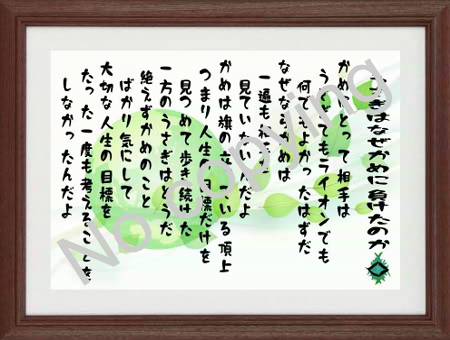 うさぎはなぜかめに負けたのか
かめにとって相手は
うさぎでもライオンでも
何でもよかったはずだ
なぜならかめは
一遍も
見ていないんだよ
かめは旗の立っている頂上
つまり人生の目標だけを
見つめて歩き続けた
一方のうさぎはどうだ
絶えずかめのこと
ばかり気にして
大切な人生の目標を
たった一度も考えることを
しなかったんだよ
No copying